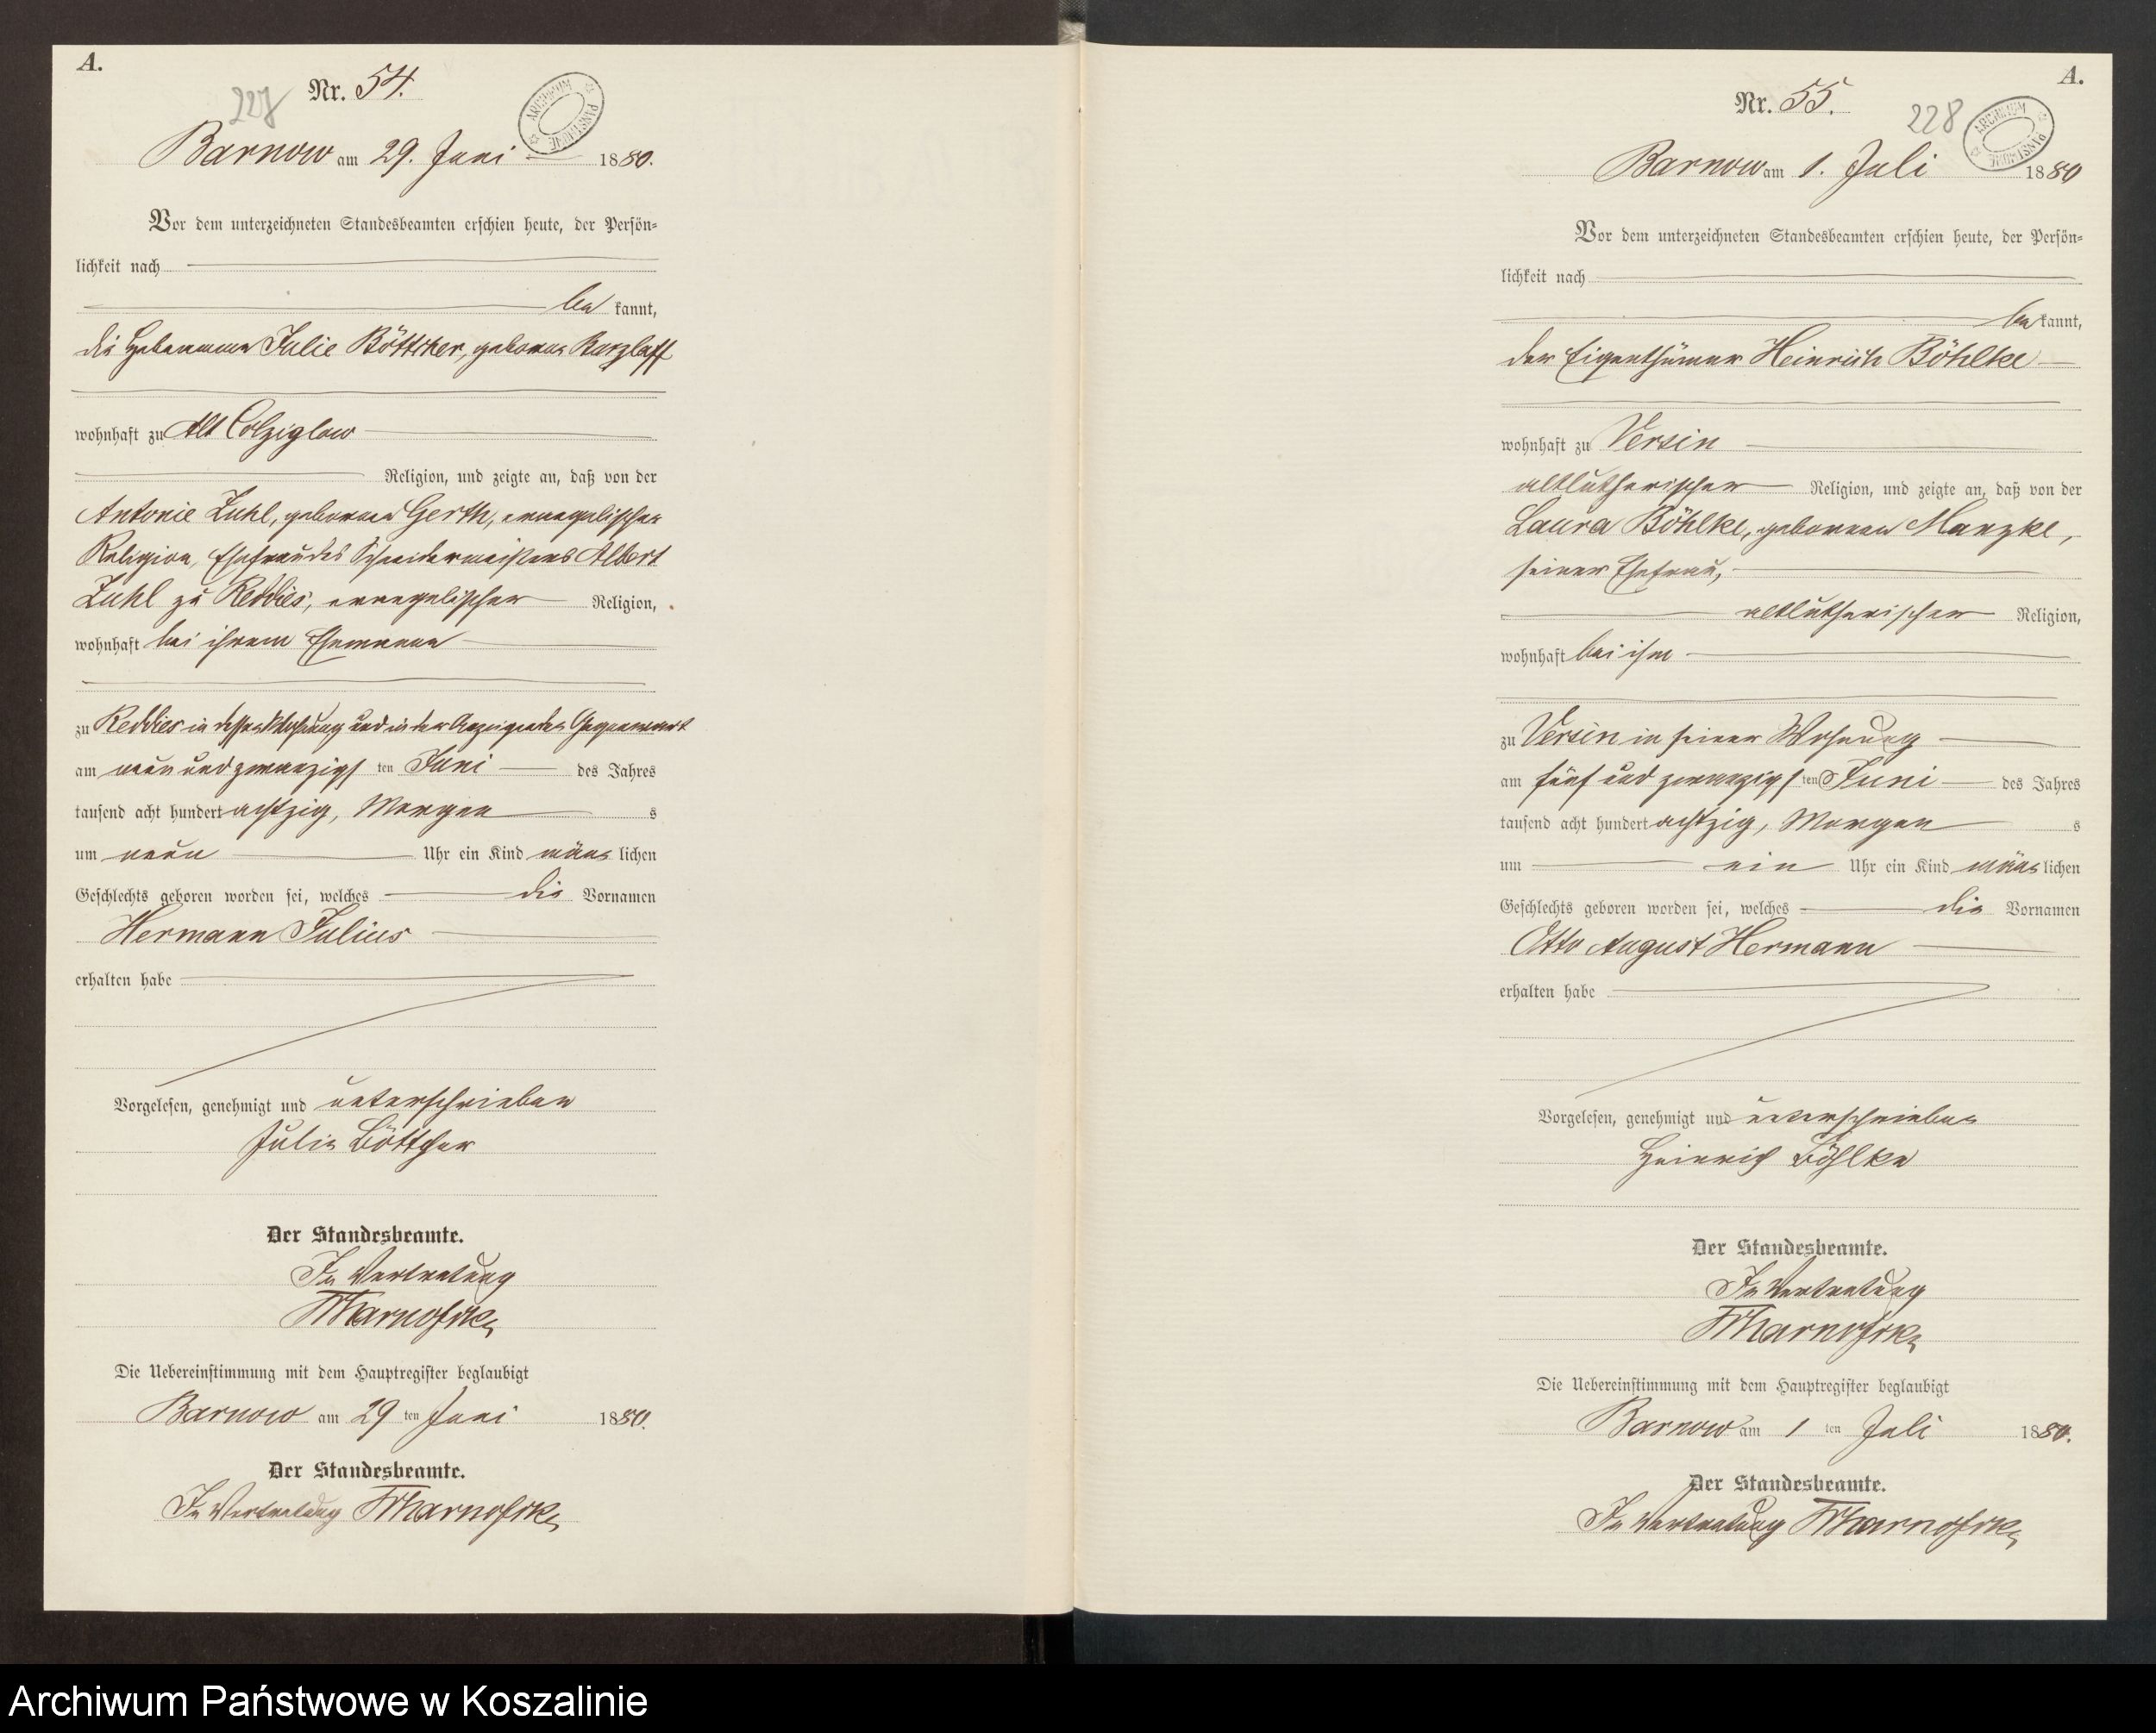 A.
227
Nr. 54.
ARCHIWUM PAŃSTWOWE
Barnow am 29. Juni 1880.
Vor dem unterzeichneten Standesbeamten erschien heute, der Persön-
lichkeit nach
be kannt,
die Hebamme Julie Böttcher, geborne Karzlaff
wohnhaft zu Alt Colziglow
Religion, und zeigte an, daß von der
Antonie Zuhl, gebornen Gerth, evangelischer
Religion, Ehefrau des Schneidermeisters Albert
Zuhl zu Reddies, evangelischer Religion,
wohnhaft bei ihrem Ehemanne
zu Reddies in dessen Wohnung und in der Anzeigenden Gegenwart
am neun und zwanzigs ten Juni des Jahres
tausend acht hundert achtzig, Morgen s
um neun Uhr ein Kind männ lichen
Geschlechts geboren worden sei, welches die Vornamen
Hermann Julius
erhalten habe
Vorgelesen, genehmigt und unterschrieben
Julie Böttcher
Der Standesbeamte.
In Vertretung
Die Uebereinstimmung mit dem Hauptregister beglaubigt
Barnow am 29 ten Juni 1880.
Der Standesbeamte.
In Vertretung
A.
Nr. 55.
228
ARCHIWUM PAŃSTWOWE
Barnow am 1. Juli 1880
Vor dem unterzeichneten Standesbeamten erschien heute, der Persön-
lichkeit nach
be kannt,
der Eigenthümer Heinrich Böhlke
wohnhaft zu Versin
altlutherischer Religion, und zeigte an, daß von der
Laura Böhlke, gebornen Manzke,
seiner Ehefrau,
altlutherischer Religion,
wohnhaft bei ihm
zu Versin in seiner Wohnung
am fünf und zwanzigs ten Juni des Jahres
tausend acht hundert achtzig, Morgen s
um ein Uhr ein Kind männ lichen
Geschlechts geboren worden sei, welches die Vornamen
Otto August Hermann
erhalten habe
Vorgelesen, genehmigt und unterschrieben
Heinrich Böhlke
Der Standesbeamte.
In Vertretung
Die Uebereinstimmung mit dem Hauptregister beglaubigt
Barnow am 1 ten Juli 1880.
Der Standesbeamte.
In Vertretung
Archiwum Państwowe w Koszalinie